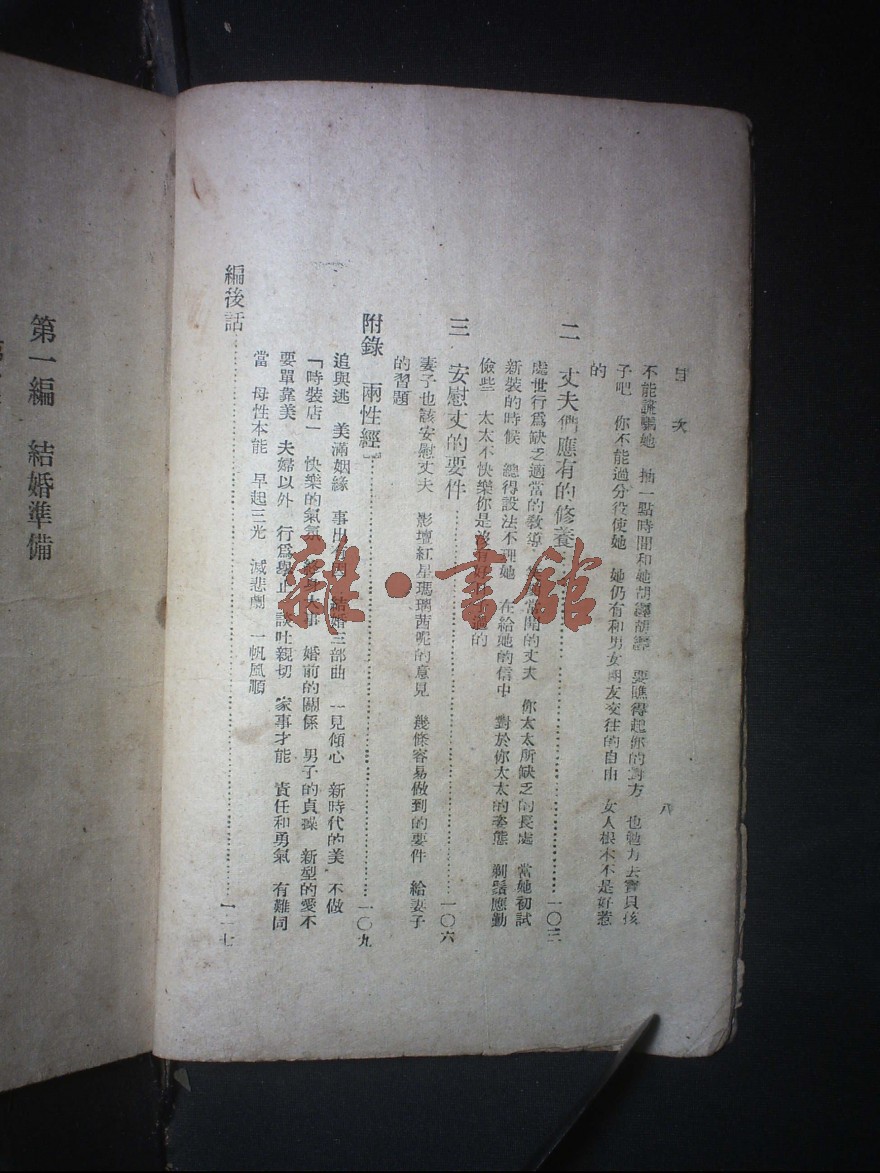 目次
八
不能誆騙她　抽一點時間和她胡謅胡謅　要瞧得起你的對方　也勉力去寶貝孩
子吧　你不能過分役使她　她仍有和男女朋友交往的自由　女人根本不是好惹
的
二　丈夫們應有的修養……一〇三
處世行爲缺乏適當的敎導　開的丈夫　你太太所缺乏的長處　當她初試
新裝的時候　總得設法不理她　在給她的信中　對於你太太的姿態　剃鬍應勤
儉些　太太不快樂你是沒有好日子過的
三　安慰丈的要件……一〇六
妻子也該安慰丈夫　影壇紅星瑪璃茜呢的意見　幾條容易做到的要件　給妻子
的習題
附錄　兩性經……一〇九
追與逃　美滿姻緣　事出有因　結婚三部曲　一見傾心　新時代的美　不做
「時裝店」　快樂的氣氛　終身大事　婚前的關係　男子的貞操　新型的愛不
要單靠美　夫婦以外　行爲舉止　談吐親切　家事才能　責任和勇氣　有難同
當　母性本能　早起三光　滅悲劇　一帆風順
編後話……一二七
第一編　結婚準備
雜·書館